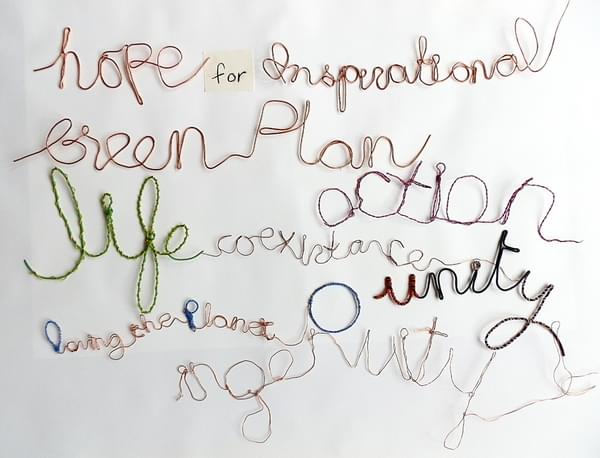 hope for Inspirational
Green Plan
action
life coexistance
unity
loving the Planet
ingenuity